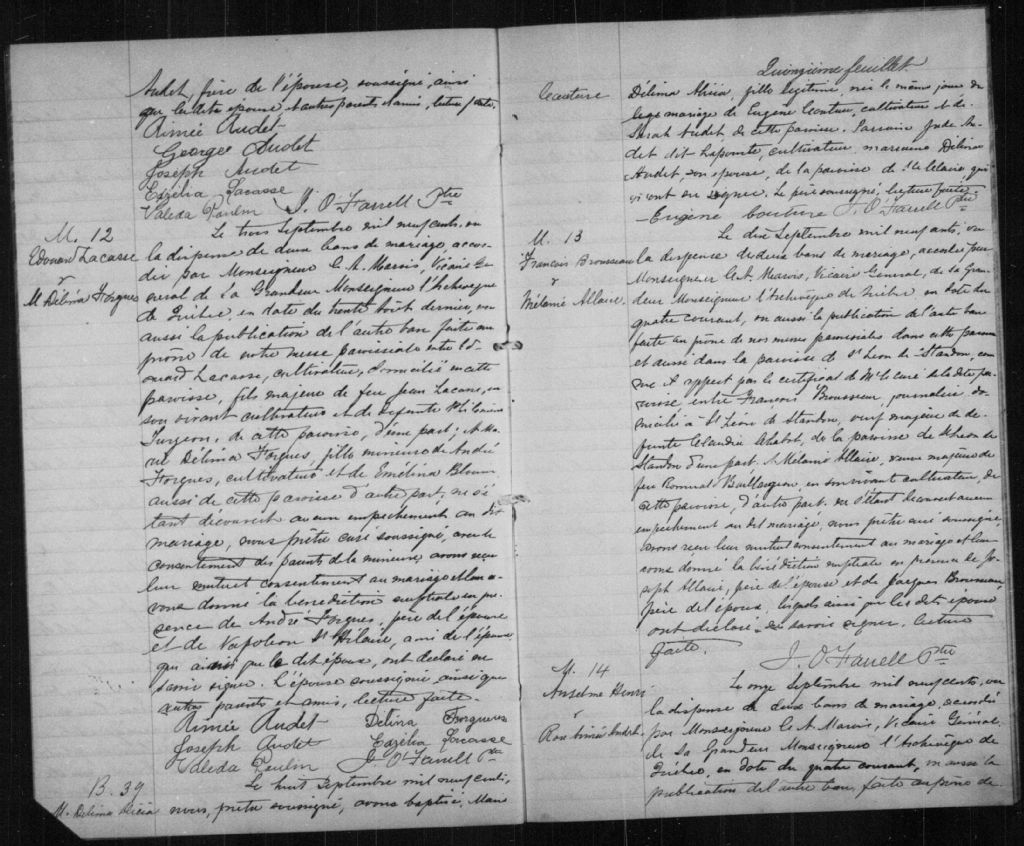 Audet, frère de l'épouse, soussigné, ainsi
que la dite épouse et autres parents et amis, lecture faite.
Aimée Audet
George Audet
Joseph Audet
Exzélia Lacasse
Valeda Paulin J. O'Farrell Ptre
M. 12
Edouard Lacasse
&
M. Délima Forgues
Le trois Septembre mil neuf cents, vu
la dispense de deux bans de mariage, accor-
dée par Monseigneur C. A. Marois, Vicaire Gé-
néral de Sa Grandeur Monseigneur l'Archevêque
de Québec, en date du trente Août dernier, vu
aussi la publication de l'autre ban faite au
prône de notre messe paroissiale entre Ed-
ouard Lacasse, cultivateur, domicilié en cette
paroisse, fils majeur de feu Jean Lacasse, en
son vivant cultivateur et de défunte Philomène
Turgeon, de cette paroisse, d'une part; et Ma-
rie Délima Forgues, fille mineure de André
Forgues, cultivateur et de Emélina Blouin
aussi de cette paroisse d'autre part; ne s'é-
tant découvert aucun empêchement au dit
mariage, nous prêtre curé soussigné, avec le
consentement des parents de la mineure avons reçu
leur mutuel consentement au mariage et leur a-
vons donné la bénédiction nuptiale en pré-
sence de André Forgues, père de l'épouse
et de Napoléon St Hilaire, ami de l'époux
qui ainsi que le dit époux, ont déclaré ne
savoir signer. L'épouse soussignée ainsi que
autres parents et amis, lecture faite.
Aimée Audet Délina Forgues
Joseph Audet Exzélia Lacasse
Valeda Paulin J. O'Farrell Ptre
B. 39
M. Délima Alicia
Le huit Septembre mil neuf cents,
nous, prêtre soussigné, avons baptisé, Marie
Quinzième feuillet
Couture
Délima Alicia, fille légitime, née le même jour du
légé mariage de Eugène Couture, cultivateur et de
Sarah Audet de cette paroisse. Parrain Jude Au-
det dit Lapointe, cultivateur, marraine Délima
Audet, son épouse, de la paroisse de Ste Claire qui
n'ont su signer. Le père soussigné, lecture faite.
Eugène Couture J. O'Farrell Ptre
M. 13
François Brousseau
&
Mélanie Allaire
Le dix Septembre mil neuf cents, vu
la dispense de deux bans de mariage, accordée par
Monseigneur C. A. Marois, Vicaire Général, de Sa Gran-
deur Monseigneur l'Archevêque de Québec en date du
quatre courant, vu aussi la publication de l'autre ban
faite au prône de nos messes paroissiales dans cette paroisse
et aussi dans la paroisse de St Léon de Standon, com-
me il appert par le certificat de Mr le curé de la dite pa-
roisse entre François Brousseau, journalier do-
micilié à St Léon de Standon, veuf majeur de dé-
funte Claudia Chabot, de la paroisse de St Léon de
Standon d'une part. Et Mélanie Allaire, veuve majeure de
feu Romuald Baillargeon, en son vivant cultivateur, de
cette paroisse, d'autre part. ne s'étant découvert aucun
empêchement au dit mariage, nous prêtre curé soussigné,
avons reçu leur mutuel consentement au mariage et leur
avons donné la bénédiction nuptiale en présence de Jo-
seph Allaire, père de l'épouse et de Jacques Brousseau,
père de l'époux, lesquels ainsi que les dits époux
ont déclaré ne savoir signer. Lecture
faite.
J. O'Farrell Ptre
M. 14
Anselme Henri
&
Rose Aimée Audet
Le onze Septembre mil neuf cents, vu
la dispense de deux bans de mariage, accordée
par Monseigneur C. A. Marois, Vicaire Général,
de Sa Grandeur Monseigneur l'Archevêque de
Québec, en date du quatre courant, vu aussi la
publication de l'autre ban, faite au prône de